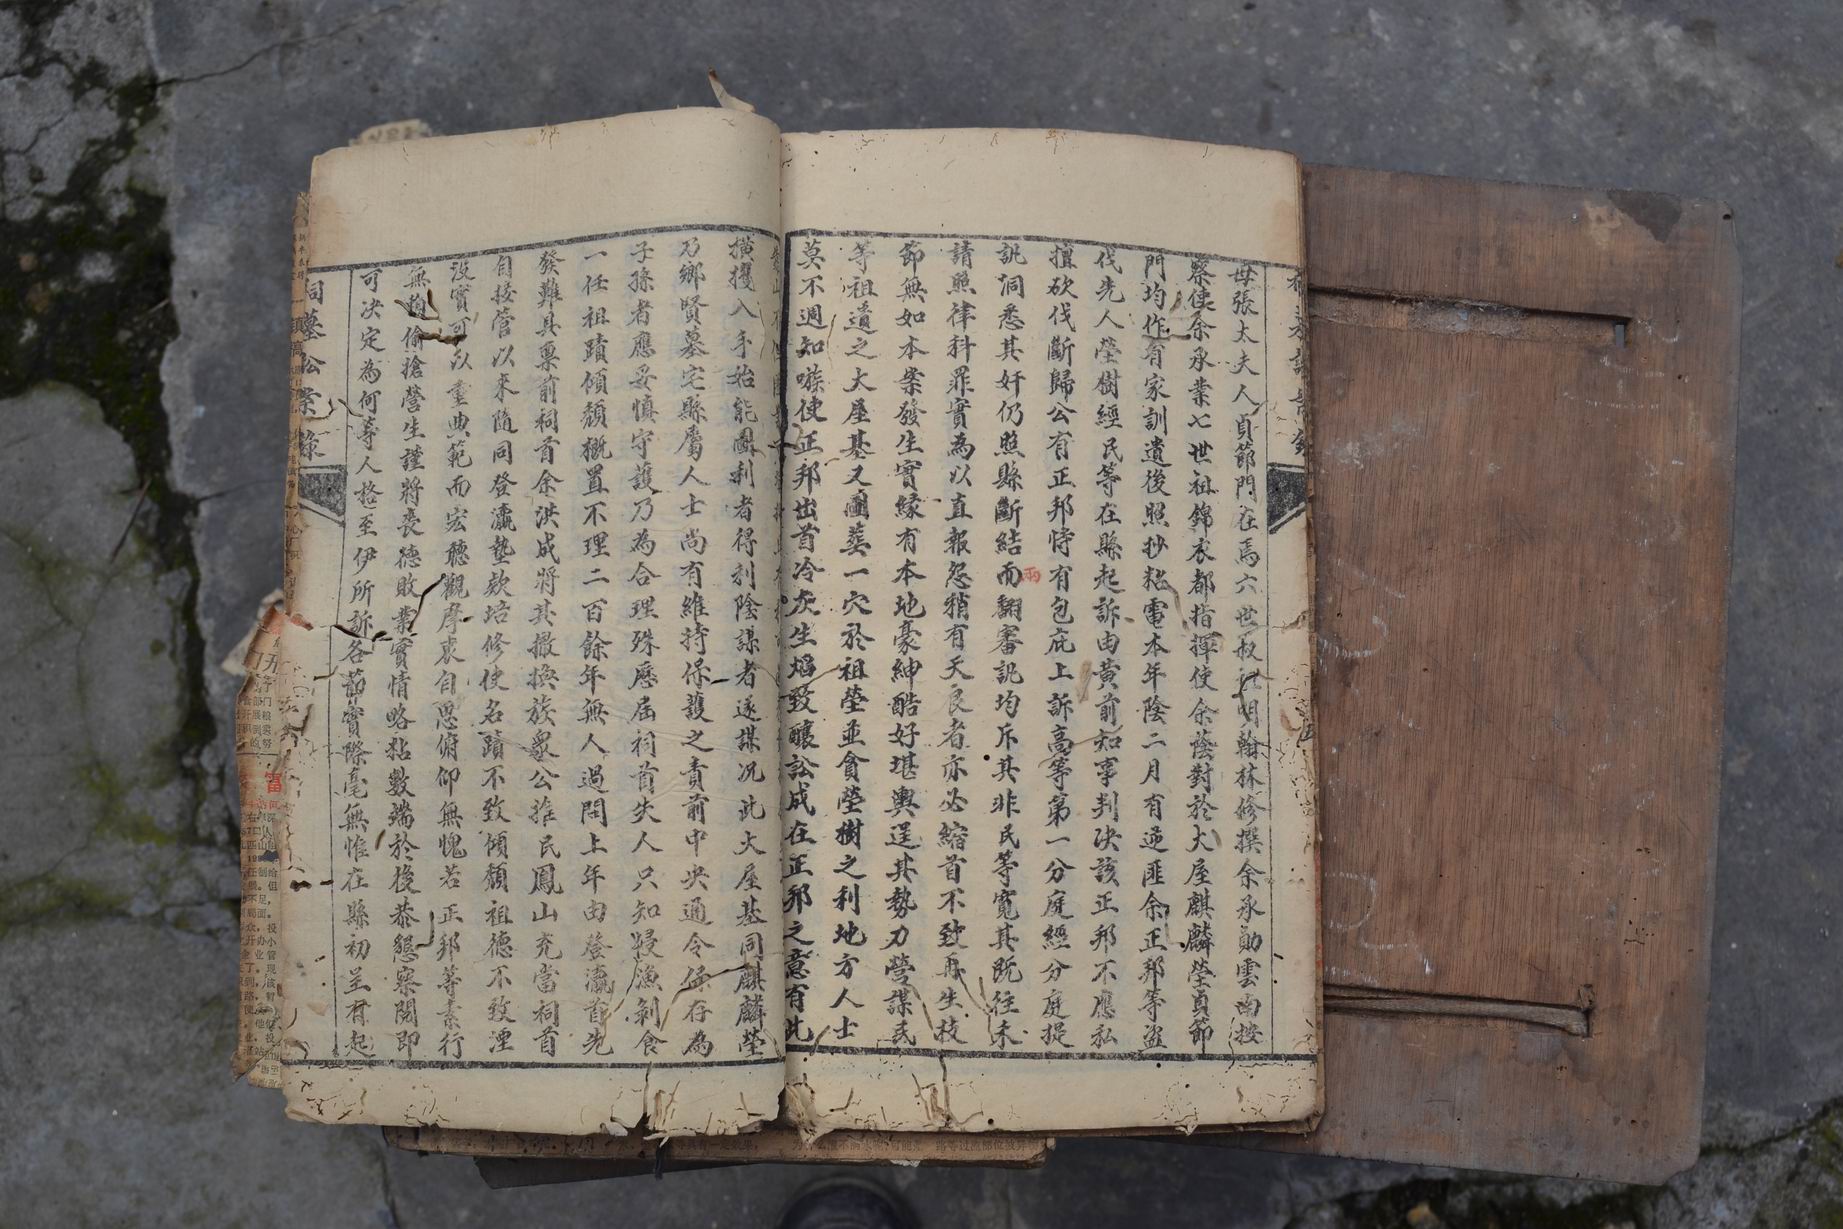 母張太夫人貞節門在焉六世叔祖明翰林修撰余承勛雲南按
察使余承業七世祖錦衣都指揮使余蔭對於大屋麒麟塋貞節
門均作有家訓遺後照抄粘電本年陰二月有逆匪余正邦等盜
伐先人塋樹經民等在縣起訴由黄前知事判决該正邦不應私
擅砍伐斷歸公有正邦恃有包庇上訴高等第一分庭經分庭提
訊洞悉其奸仍照縣斷結而翻審訊均斥其非民等寬其既往未
雨
請照律科罪實為以直報怨稍有天良者亦必縮首不致再生枝
節無如本案發生實緣有本地豪紳酷好堪輿逞其勢力營謀民
等祖遺之大屋基又圖葬一穴於祖塋並貪塋樹之利地方人士
莫不週知嗾使正邦出首冷灰生焰致釀訟成在正邦之意有此
橫攫入手始能圖利者得利陰謀者遂謀况此大屋基同麒麟塋
乃鄉賢墓宅縣屬人士尚有維持保護之責前中央通令保存為
子孫者應妥慎守護乃為合理殊歷屆祠首失人只知侵漁剝食
一任祖蹟傾頹概置不理二百餘年無人過問上年由登瀛首先
發難具稟前祠首余洪成將其撤換族眾公推民鳳山充當祠首
自接管以來隨同登瀛墊款培修使名蹟不致傾頹祖德不致湮
沒實可以重典範而宏聽觀摩衷自思俯仰無愧若正邦等素行
無賴偷搶營生謹將喪德敗業實情略粘數端於後恭懇察閱即
可决定為何等人格至伊所訴各節實際毫無惟在縣初呈有起
祠墓公案錄